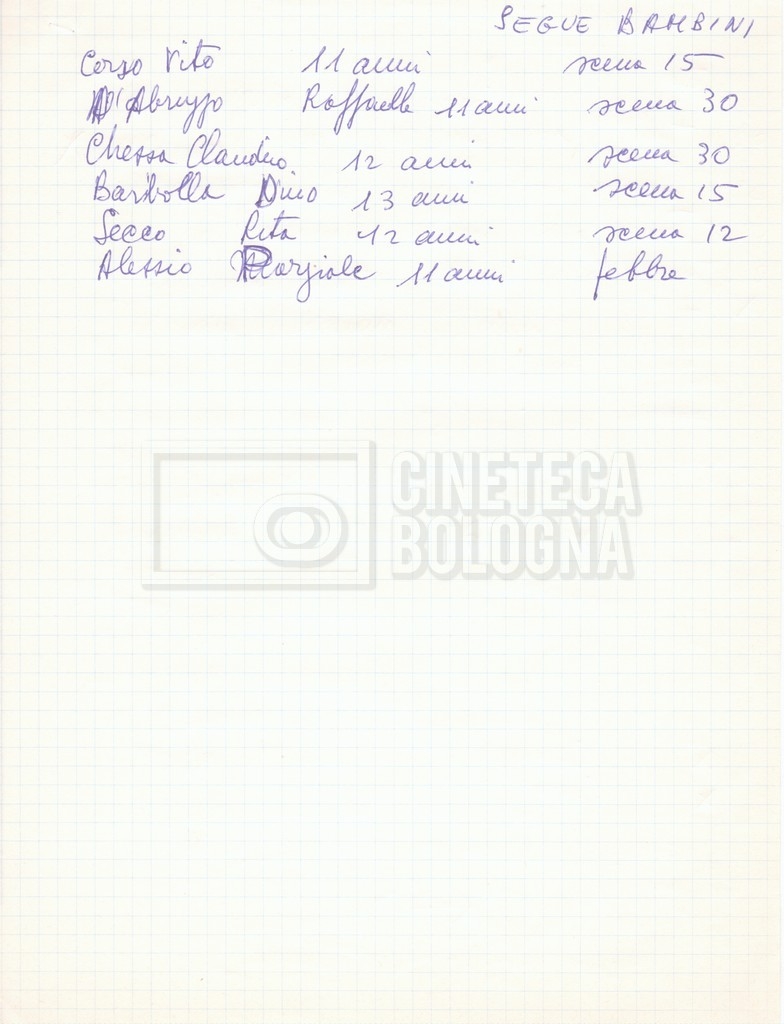 SEGUE BAMBINI
Corso Vito 11 anni scena 15
D'Abruzzo Raffaele 11 anni scena 30
Chessa Claudio 12 anni scena 30
Baribolla Dino 13 anni scena 15
Secco Rita 12 anni scena 12
Alessio 11 anni febbre
CINETECA
BOLOGNA